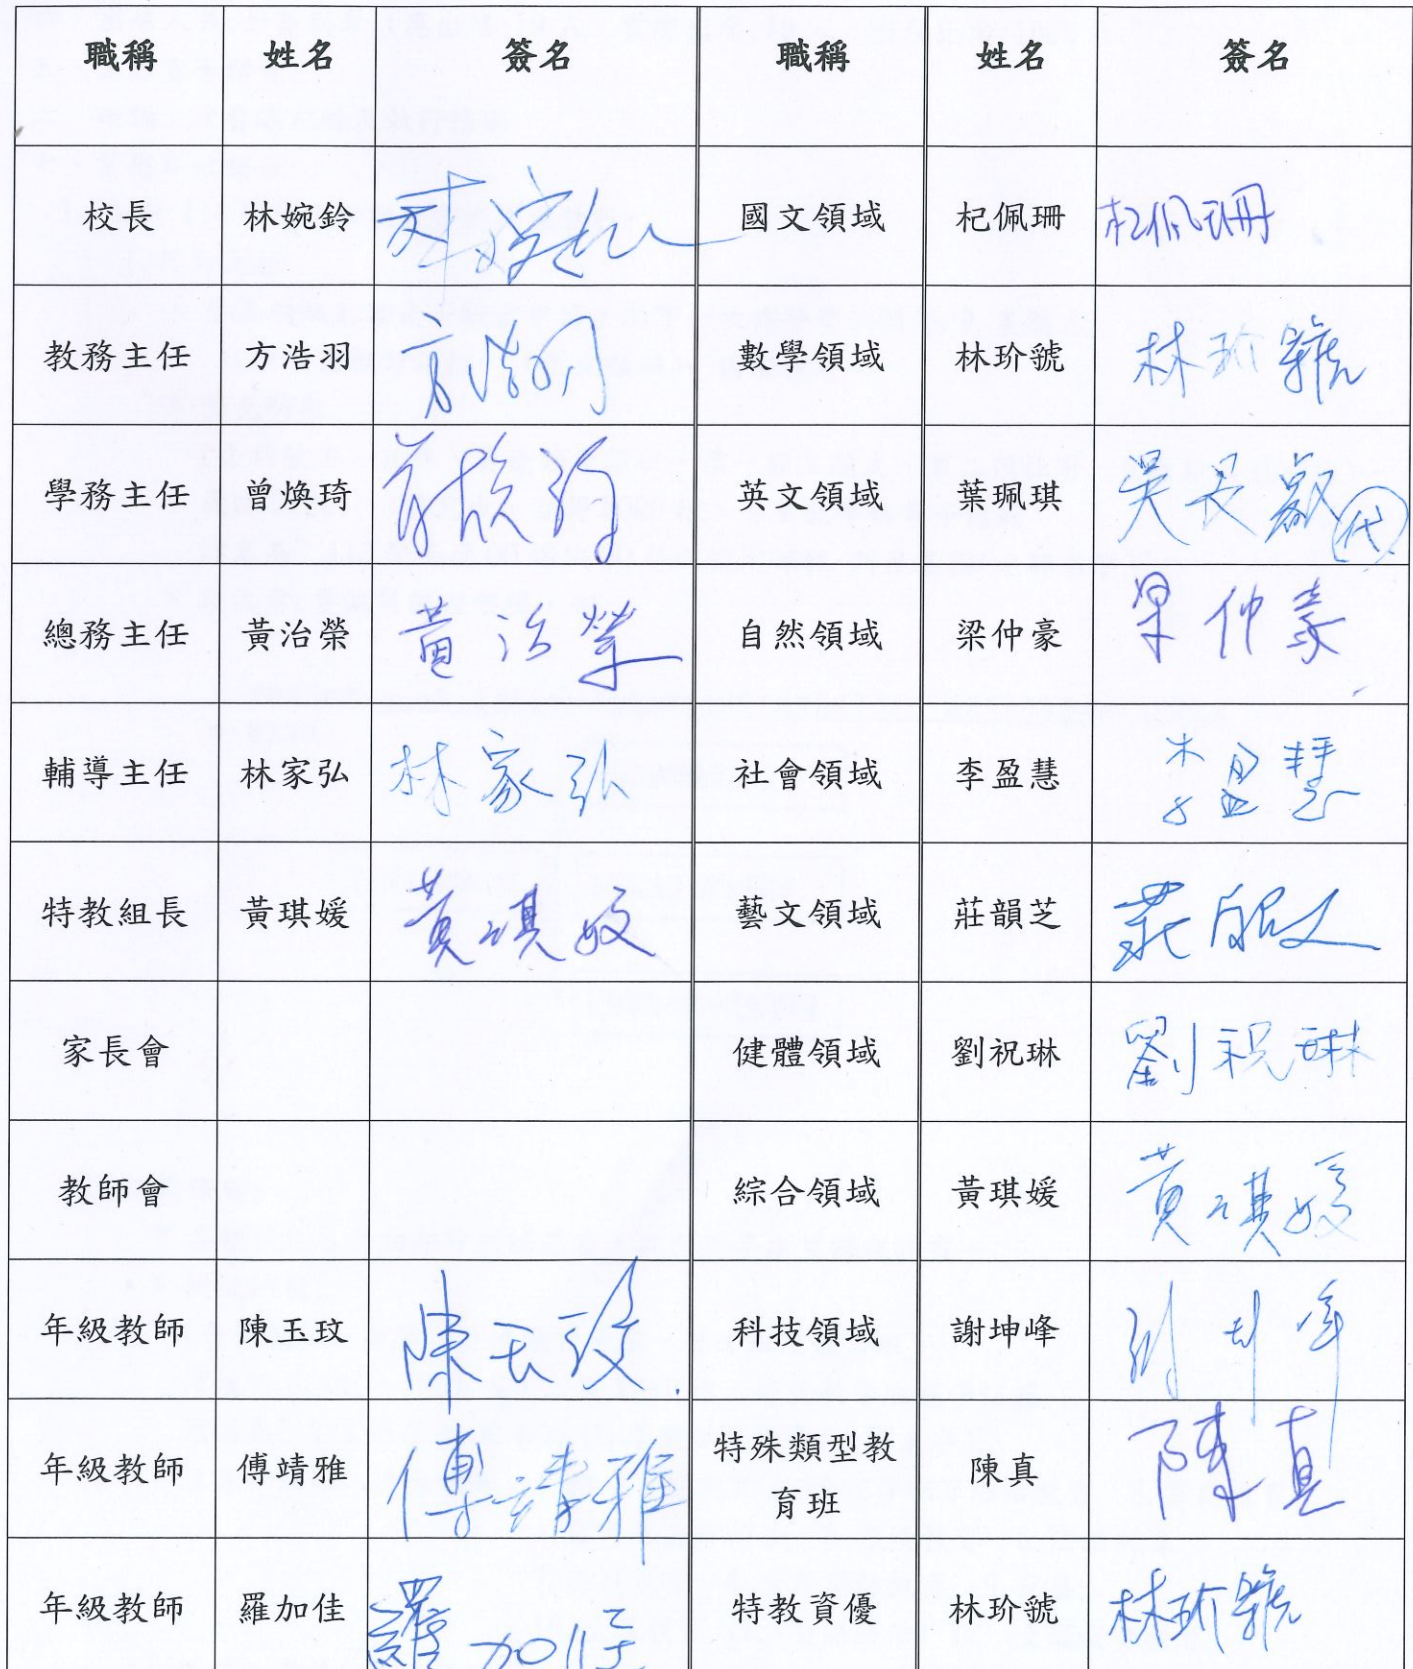 職稱 姓名 簽名 職稱 姓名 簽名
校長 林婉鈴 林婉鈴 國文領域 杞佩珊 杞佩珊
教務主任 方浩羽 方浩羽 數學領域 林玠號 林玠號
學務主任 曾煥琦 英文領域 葉珮琪 吳長叡代
總務主任 黃治榮 黃治榮 自然領域 梁仲豪 梁仲豪
輔導主任 林家弘 林家弘 社會領域 李盈慧 李盈慧
特教組長 黃琪媛 黃琪媛 藝文領域 莊韻芝 莊韻芝
家長會 健體領域 劉祝琳 劉祝琳
教師會 綜合領域 黃琪媛 黃琪媛
年級教師 陳玉玟 陳玉玟 科技領域 謝坤峰 謝坤峰
年級教師 傅靖雅 傅靖雅 特殊類型教 陳真 陳真
育班
年級教師 羅加佳 羅加佳 特教資優 林玠號 林玠號